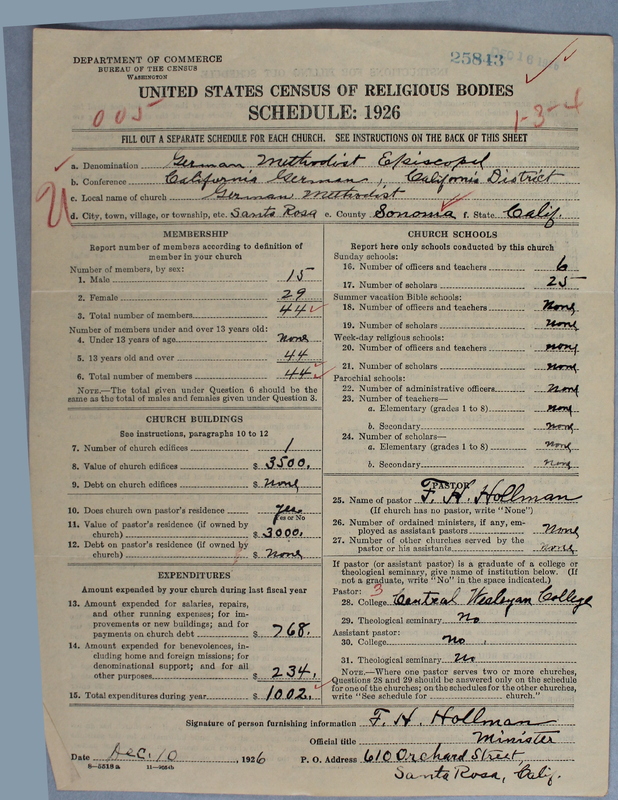 DEPARTMENT OF COMMERCE
BUREAU OF THE CENSUS
WASHINGTON
25843
UNITED STATES CENSUS OF RELIGIOUS BODIES
SCHEDULE: 1926
005
1-3-4
FILL OUT A SEPARATE SCHEDULE FOR EACH CHURCH. SEE INSTRUCTIONS ON THE BACK OF THIS SHEET
a. Denomination German Methodist Episcopal
b. Conference California German, California District
c. Local name of church German Methodist
d. City, town, village, or township, etc. Santa Rosa e. County Sonoma f. State Calif.
MEMBERSHIP
Report number of members according to definition of
member in your church
Number of members, by sex:
1. Male 15
2. Female 29
3. Total number of members 44
Number of members under and over 13 years old:
4. Under 13 years of age None
5. 13 years old and over 44
6. Total number of members 44
NOTE.—The total given under Question 6 should be the
same as the total of males and females given under Question 3.
CHURCH BUILDINGS
See instructions, paragraphs 10 to 12
7. Number of church edifices 1
8. Value of church edifices $ 3500.
9. Debt on church edifices $ None
10. Does church own pastor's residence yes
Yes or No
11. Value of pastor's residence (if owned by
church) $ 3000.
12. Debt on pastor's residence (if owned by
church) $ None
EXPENDITURES
Amount expended by your church during last fiscal year
13. Amount expended for salaries, repairs,
and other running expenses; for im-
provements or new buildings; and for
payments on church debt $ 768.
14. Amount expended for benevolences, in-
cluding home and foreign missions; for
denominational support; and for all
other purposes $ 234.
15. Total expenditures during year $ 1002.
CHURCH SCHOOLS
Report here only schools conducted by this church
Sunday schools:
16. Number of officers and teachers 6
17. Number of scholars 25
Summer vacation Bible schools:
18. Number of officers and teachers None
19. Number of scholars None
Week-day religious schools:
20. Number of officers and teachers none
21. Number of scholars none
Parochial schools:
22. Number of administrative officers None
23. Number of teachers—
a. Elementary (grades 1 to 8) none
b. Secondary none
24. Number of scholars—
a. Elementary (grades 1 to 8) none
b. Secondary none
PASTOR
25. Name of pastor F. H. Hollman
(If church has no pastor, write "None")
26. Number of ordained ministers, if any, em-
ployed as assistant pastors None
27. Number of other churches served by the
pastor or his assistants none
If pastor (or assistant pastor) is a graduate of a college or
theological seminary, give name of institution below. (If
not a graduate, write "No" in the space indicated.)
Pastor: 3
28. College Central Wesleyan College
29. Theological seminary No
Assistant pastor:
30. College No
31. Theological seminary No
NOTE.—Where one pastor serves two or more churches,
Questions 28 and 29 should be answered only on the schedule
for one of the churches; on the schedules for the other churches,
write "See schedule for church."
Signature of person furnishing information F. H. Hollman
Official title Minister
Date Dec. 10, 1926 P. O. Address 610 Orchard Street,
8—5518a
Santa Rosa, Calif.